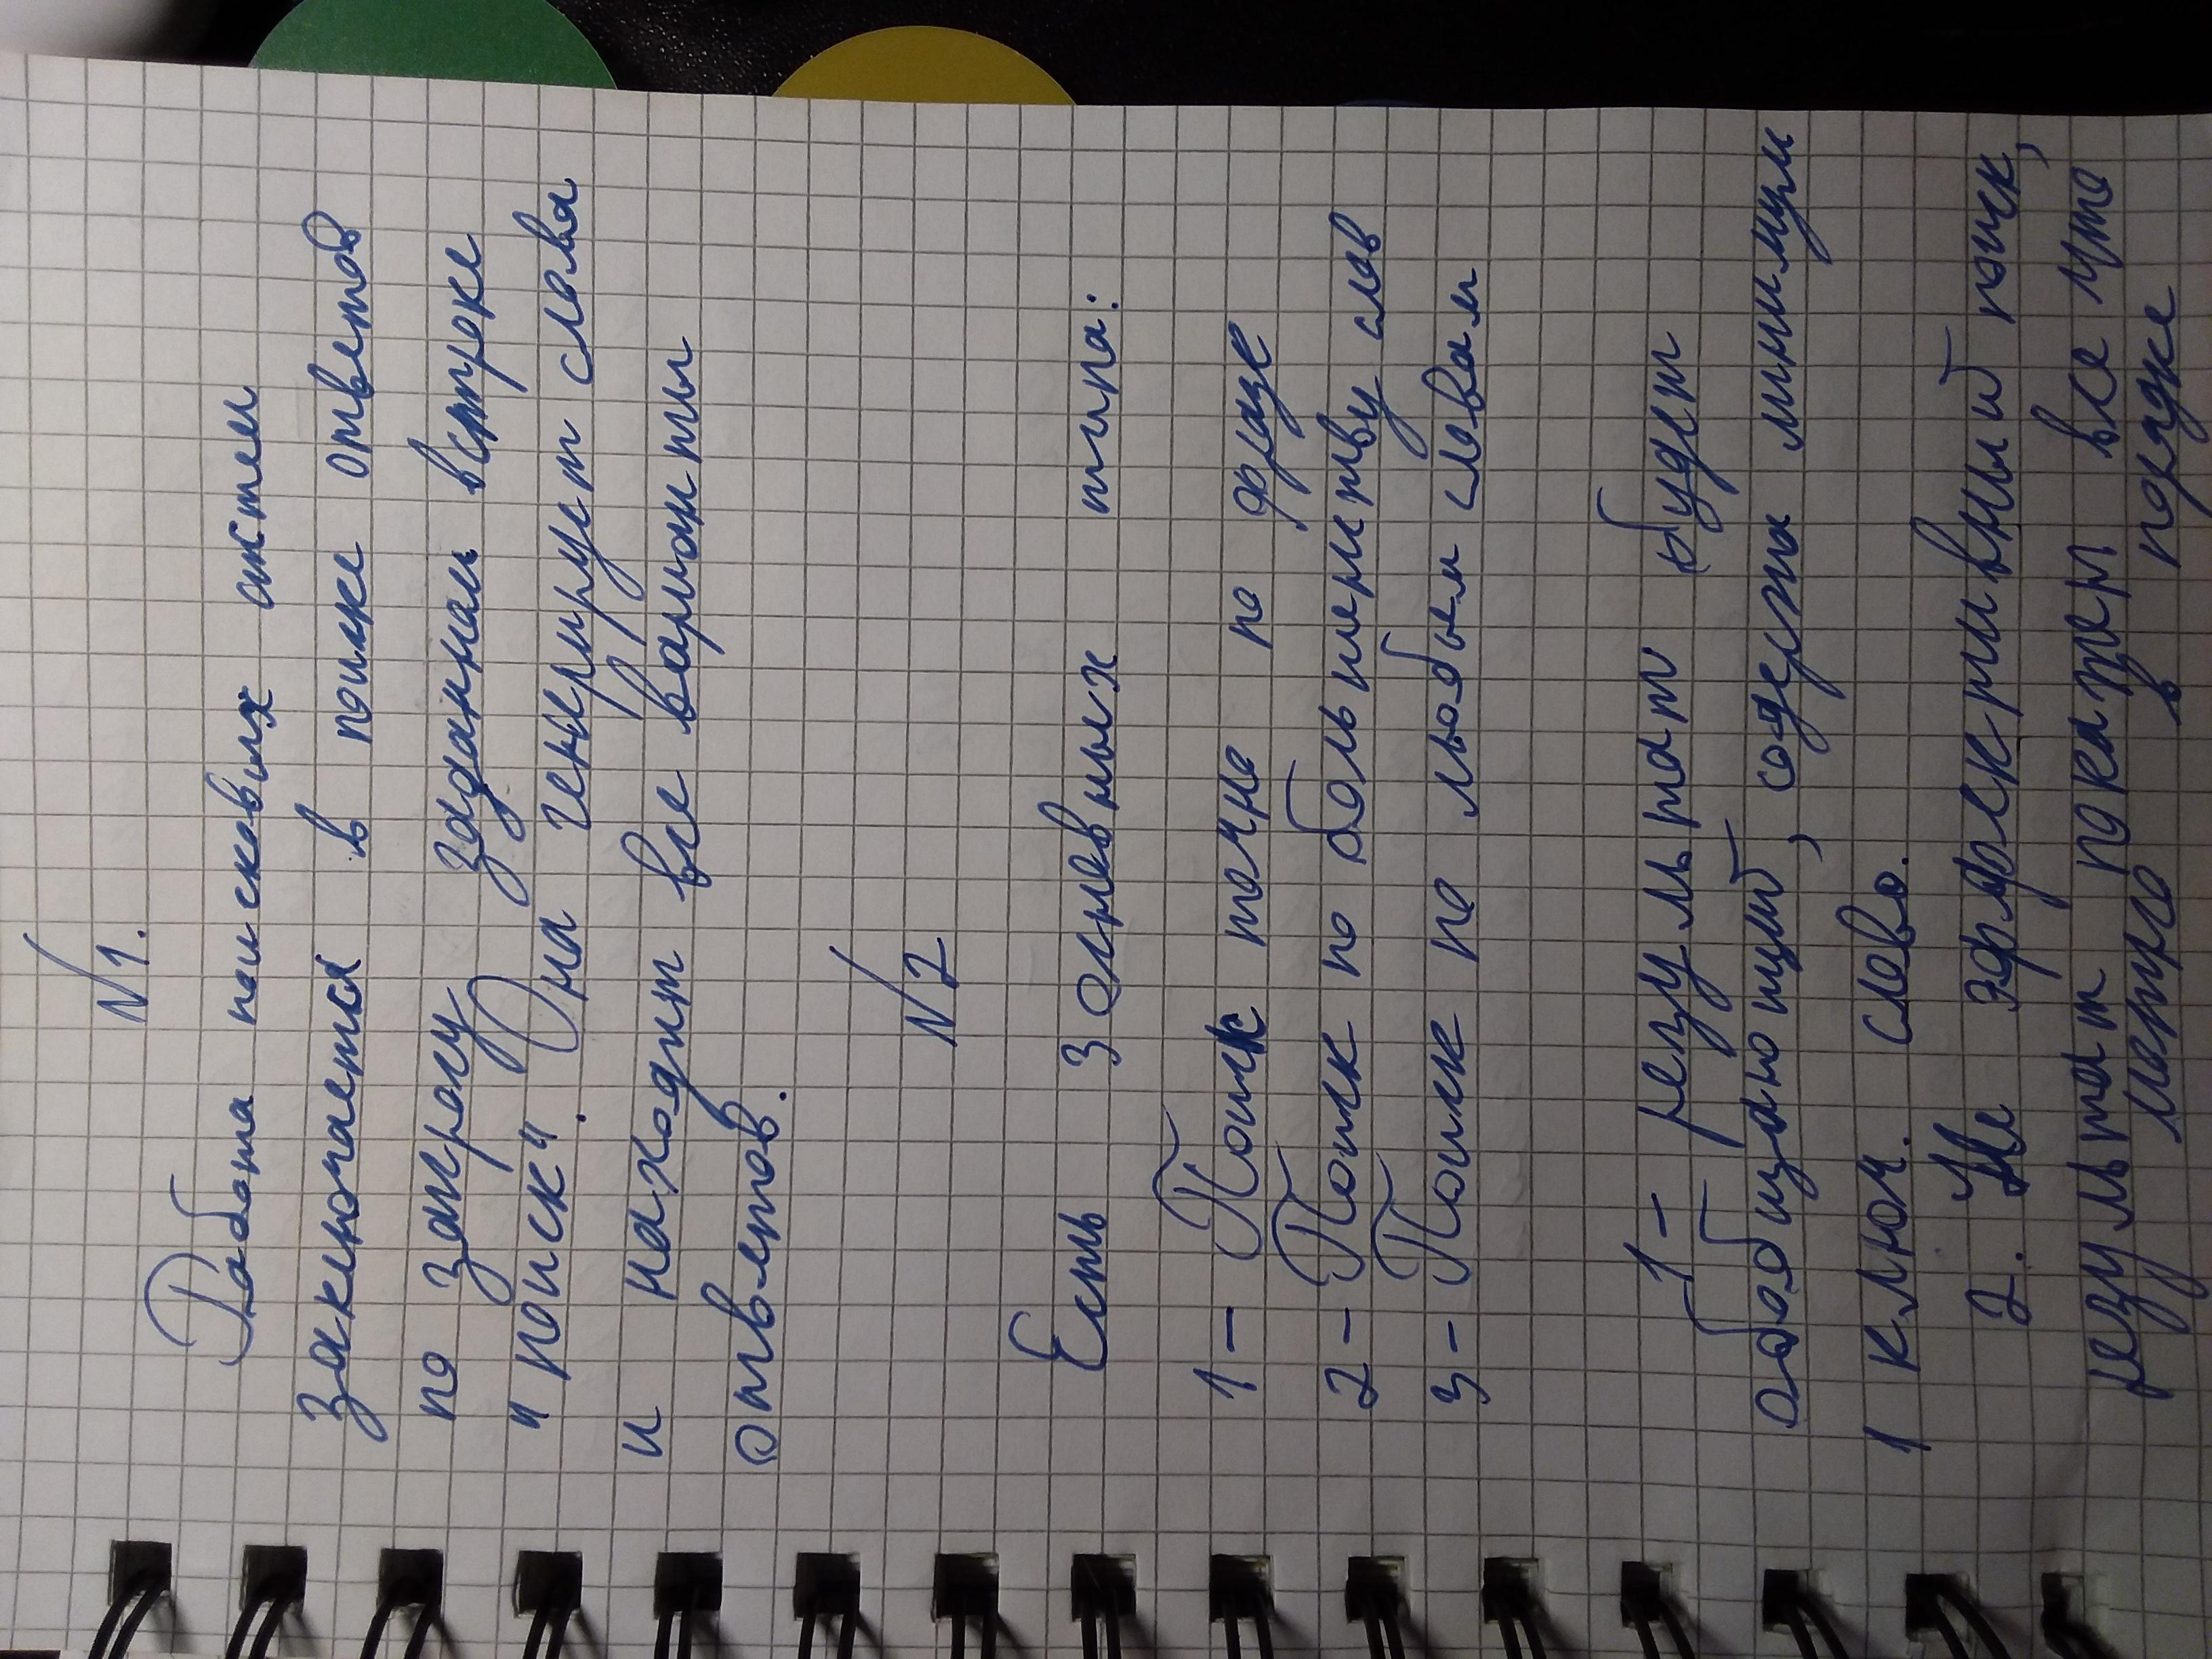 N1.
Работа поисковых систем
заключается в поиске ответов
по запросу заданнам встроке
"поиск". Она генерирует слова
и находит все варианты
ответов.
N2
Есть 3 основных типа:
1- Поиск точно по фразе
2- Поиск по большинству слов
3- Поиск по любым словам
1- результат будет
обобщающий, содержа минимум
1 ключ. слово.
2. Не эффективный поиск,
результат покажет все что
в порядке